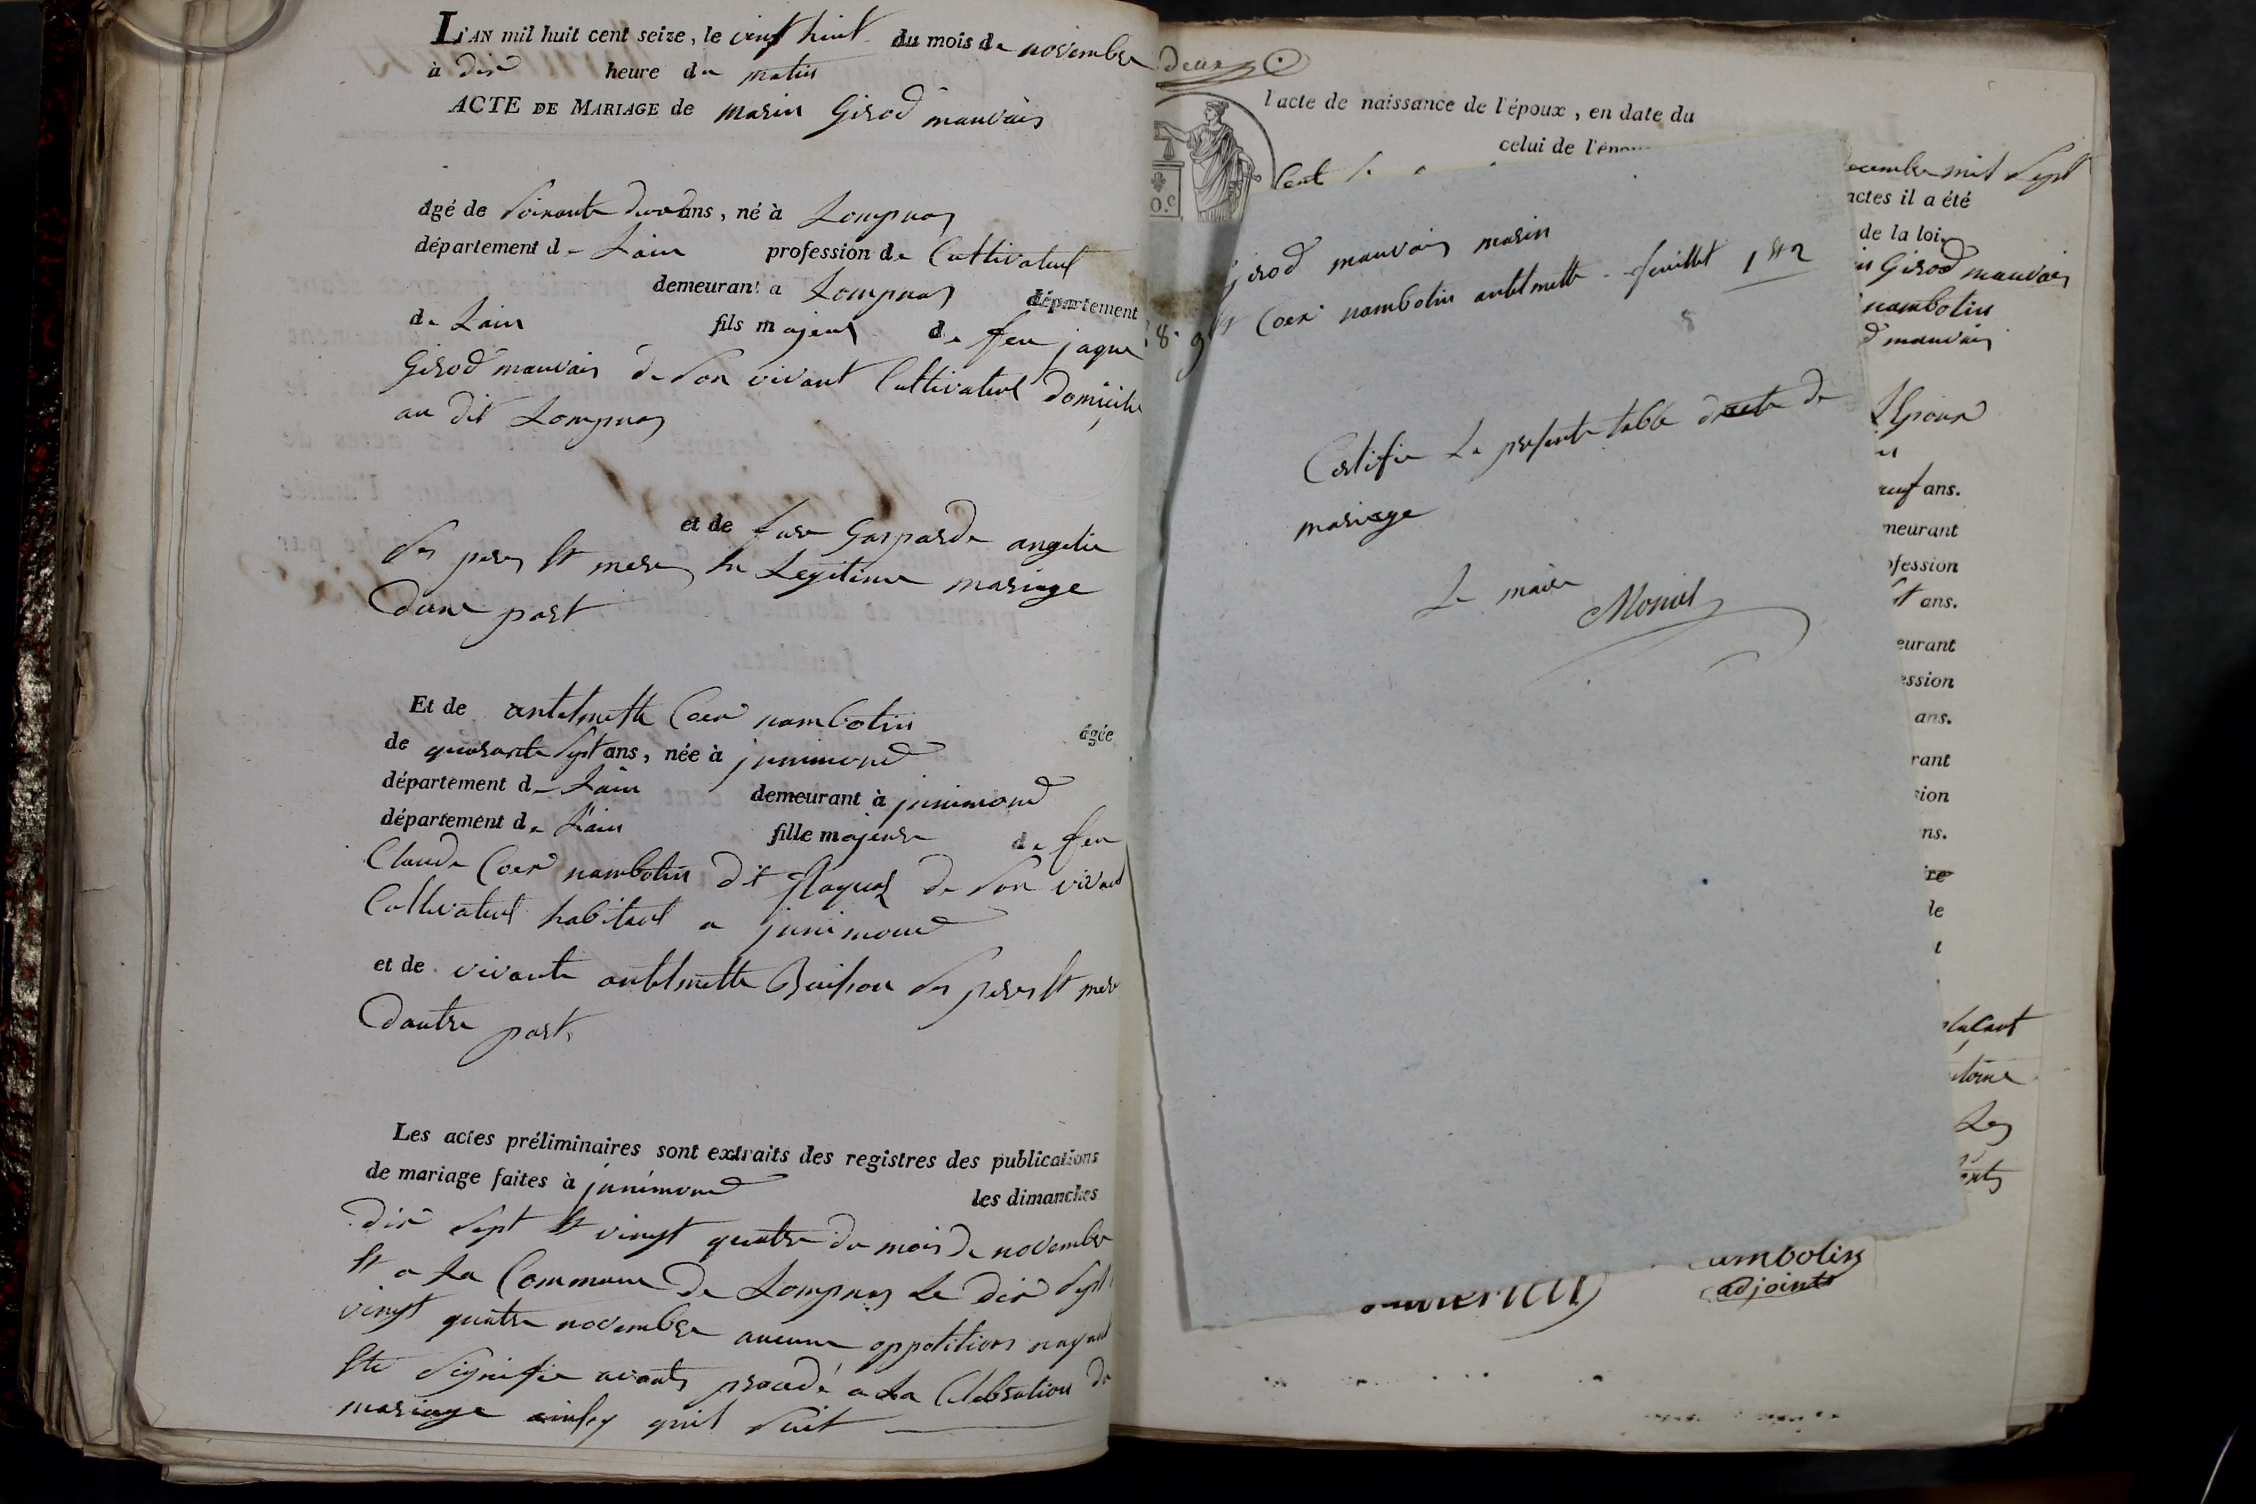 L'AN mil huit cent seize, le vint huit du mois de novembre
à dix heure du matin
ACTE DE MARIAGE de marin Girod mauvais
âgé de soixante deux ans, né à Lompnas
département de Lain profession de Cultivateur
demeurant a Lompnas département
de Lain fils majeur de feu jaque
Girod mauvais de son vivant Cultivateur domicilie
au dit Lompnas
et de fue Gasparde angelie
ses peres et mere en Legitime mariage
dune part
Et de antelmette Coer nambotin agée
de quarante sept ans, née à junimond
département de Lain demeurant à junimond
département de Lain fille majeure de feu
Claude Coer nambotin dit de son vivant
Cultivateur habitant a junimond
et de vivante antelmette Buisson ses peres et mere
dautre part.
Les actes préliminaires sont extraits des registres des publications
de mariage faites à junimond les dimanches
dix sept et vingt quatre du mois de novembre
et a la Commune de Lompnas le dix sept
vingt quatre novembre aucune oppotitions nayant
ete signifie avons procedé a la Celebration du
mariage ainsy quil suit
deux
l'acte de naissance de l'époux, en date du
celui de l'épou
Cent
ecembre mil sept
actes il a été
de la loi.
Girod mauvais
nambotin
d mauvais
Girod mauvais marin
et Coer nambotin antelmette - feuillet 1 et 2
8
Certifie la presente table de
mariage
Le maire
Moniel
Epoux
neuf ans.
meurant
ofession
et ans.
eurant
ession
ans.
rant
sion
ns.
re
le
t
Les
ambotin
adjoint